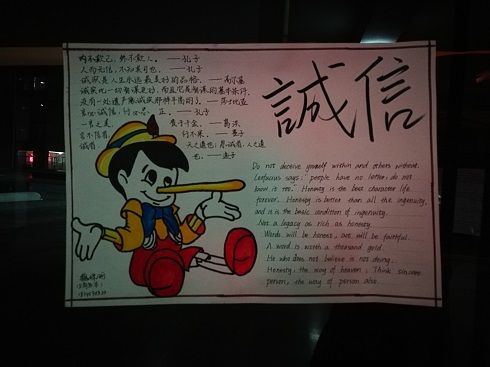 内不欺己，外不欺人。——孔子
人而无信，不知其可也。——孔子
诚实是人生永远最美好的品格。——高尔基
诚实比一切智谋更好，而且它是智谋的基本条件。
没有一处遗产像诚实那样丰富的。——莎士比亚
言必诚信，行必 正。——孔子
一言之美，贵于千金。——葛洪
言不信者，行不果。——墨子
诚者，天之道也；思诚者，人之道
也。——孟子
誠信
Do not deceive yourself within and others without.
Confucius says: people have no letter, do not
know it too. Honesty is the best character life
forever. Honesty is better than all the ingenuity,
and it is the basic condition of ingenuity.
Not a legacy as rich as honesty.
Words will be honest, act will be faithful.
A word is worth a thousand gold.
He who does not believe is not doing.
Honesty, the way of heaven; Think sincere
person, the way of person also.